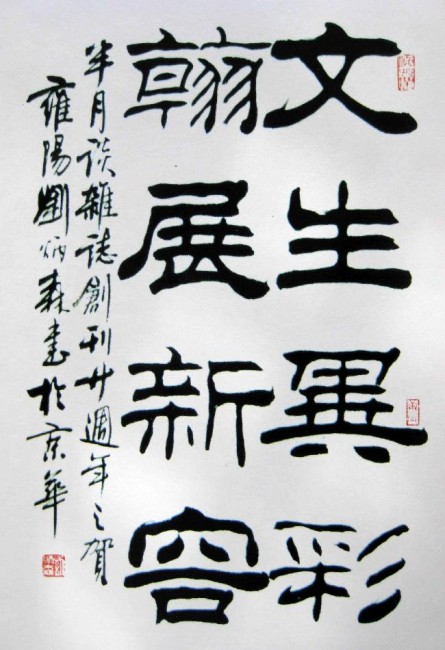 文生異彩
翰展新容
半月談雜誌創刊廿週年之賀
雍陽劉炳森書於京華